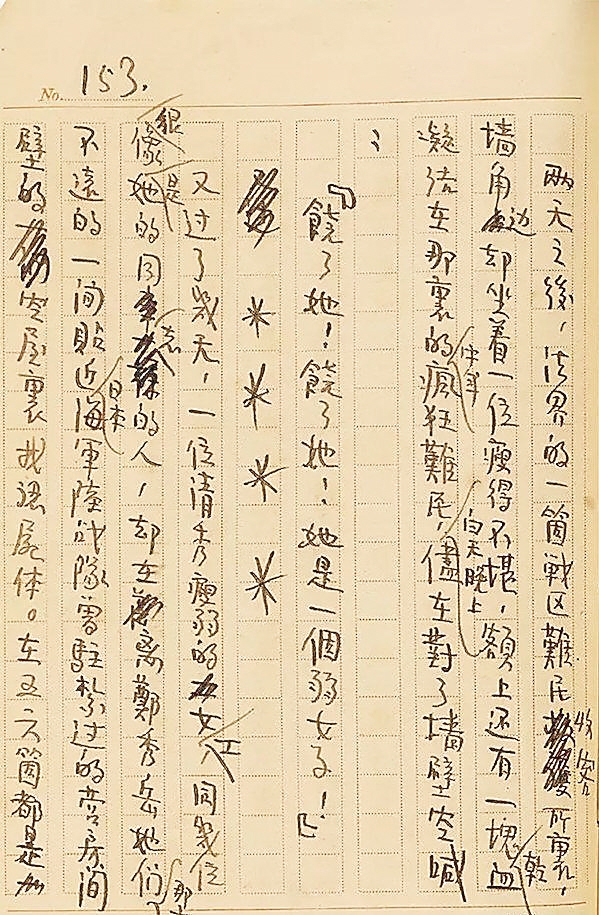 No. 153.
两天之後，法界的一箇戦区難民收容所裏，
墙角边却坐着一位瘦得不堪，额上还有一塊乾血
凝结在那裏的中年瘋狂難民，白天晚上儘在對了墙壁空喊
：
『饒了她！饒了她！她是一個弱女子！』
＊＊＊＊
又过了幾天，一位清秀瘦弱的女工，同幾位
很像是她的同志的人，却在离鄭秀岳她们
不遠的一间貼近日本海軍陸战隊曾駐紮过的营房间
壁的空屋裏找認屍体。在五六箇都是